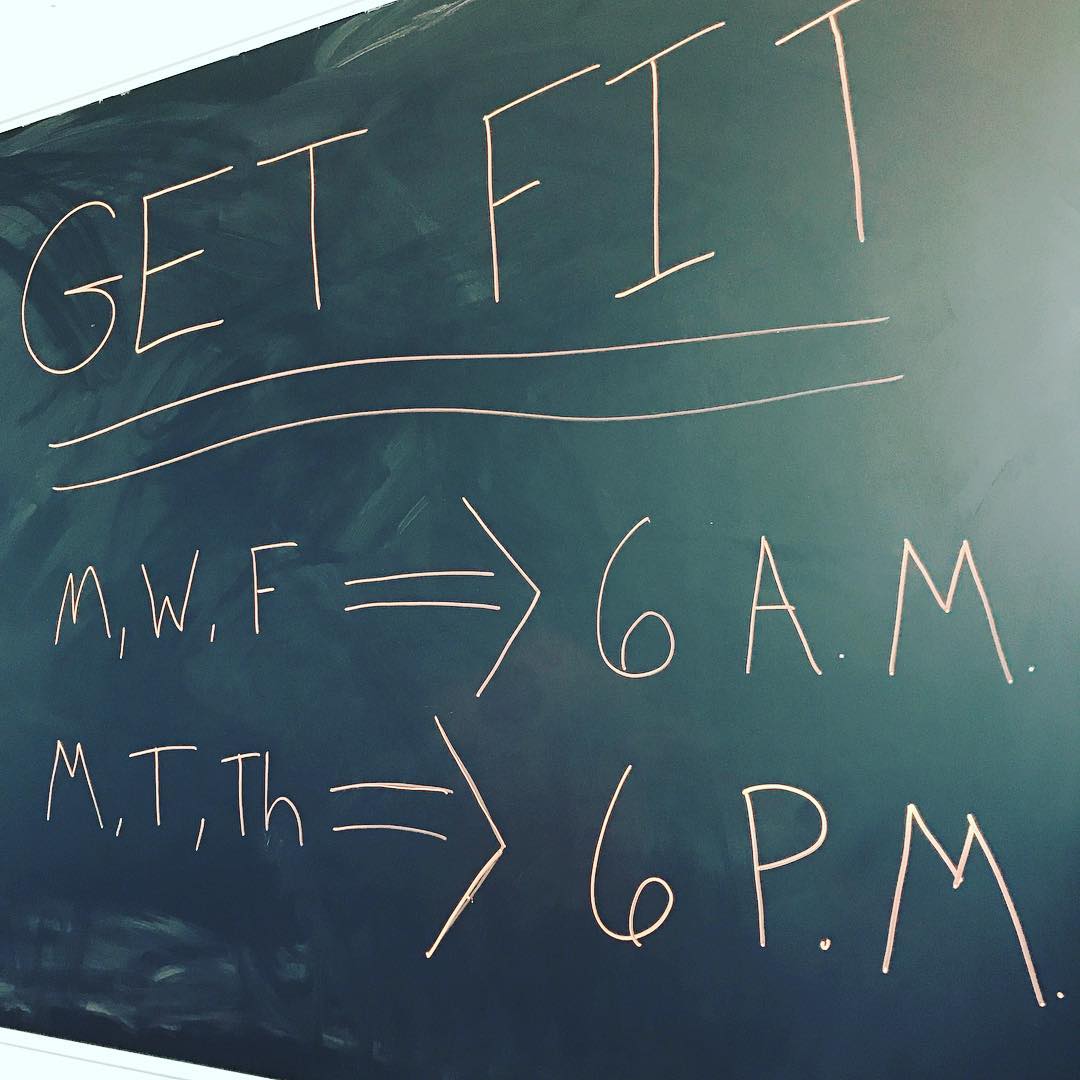 GET FIT
M, W, F => 6 A.M.
M, T, Th => 6 P.M.